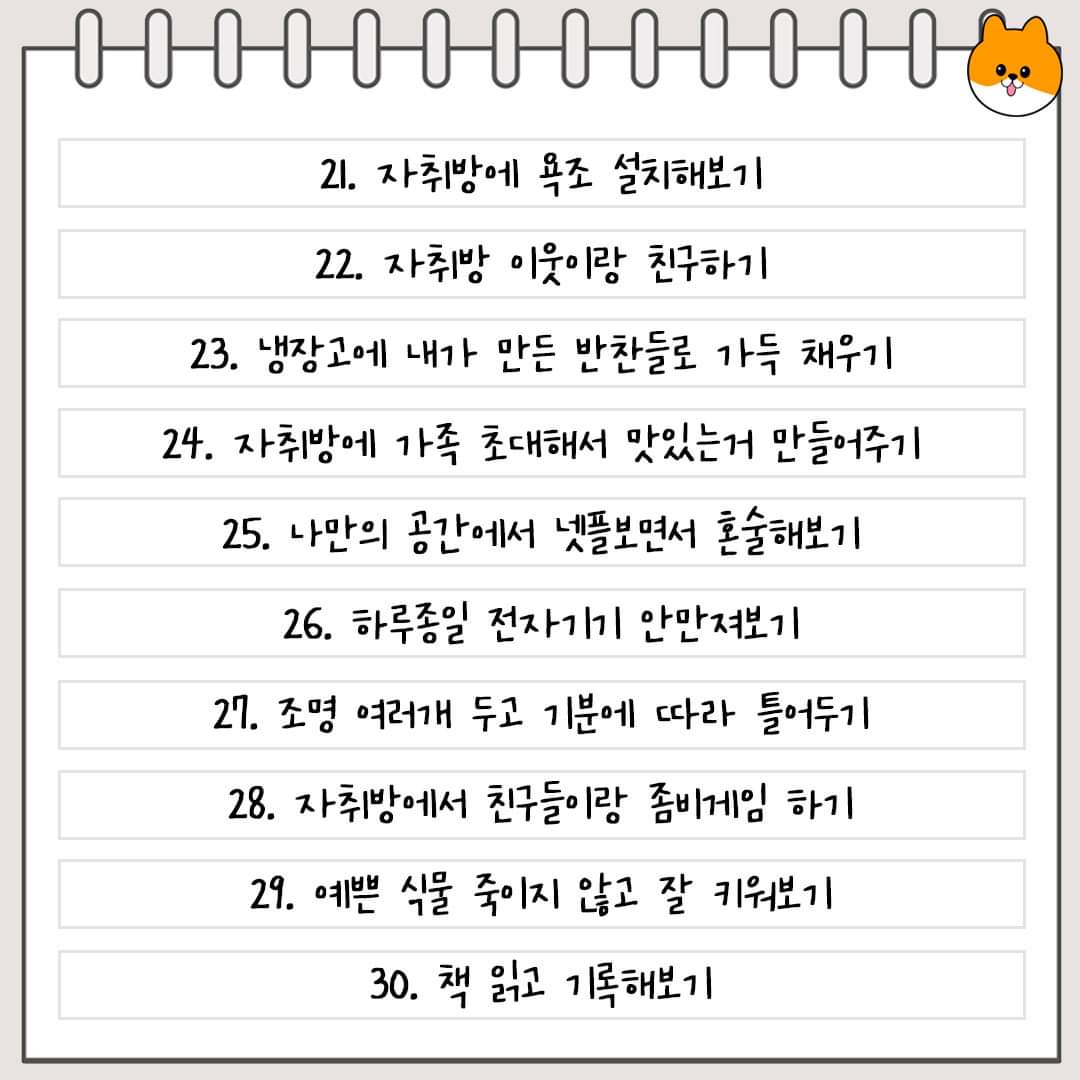 21. 자취방에 욕조 설치해보기
22. 자취방 이웃이랑 친구하기
23. 냉장고에 내가 만든 반찬들로 가득 채우기
24. 자취방에 가족 초대해서 맛있는거 만들어주기
25. 나만의 공간에서 넷플보면서 혼술해보기
26. 하루종일 전자기기 안만져보기
27. 조명 여러개 두고 기분에 따라 틀어두기
28. 자취방에서 친구들이랑 좀비게임 하기
29. 예쁜 식물 죽이지 않고 잘 키워보기
30. 책 읽고 기록해보기